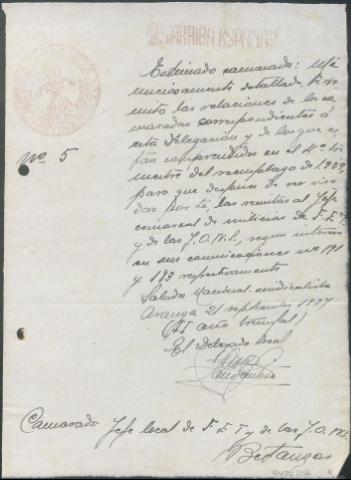 ¡¡ARRIBA ESPAÑA!!
Estimado camarada: Mi-
nuciosamente detallada, te re-
mito las relaciones de los ca-
maradas correspondientes á
esta Delegación y de los que es-
tan comprendidos en el 4º tri-
mestre del reemplazo de 1.929,
para que despues de ser visa-
das por ti, las remitas al Jefe
comarcal de milicias de F.E.T.
y de las J.O.N.S., segun interesa
en sus comunicaciones nº 191
y 183 respectivamente
nº 5
Saludo Nacional sindicalista
Aranga 21 septiembre 1937
(II año triunfal)
El Delegado local
Camarada Jefe local de F.E.T. y de las J.O.N.S.
Betanzos